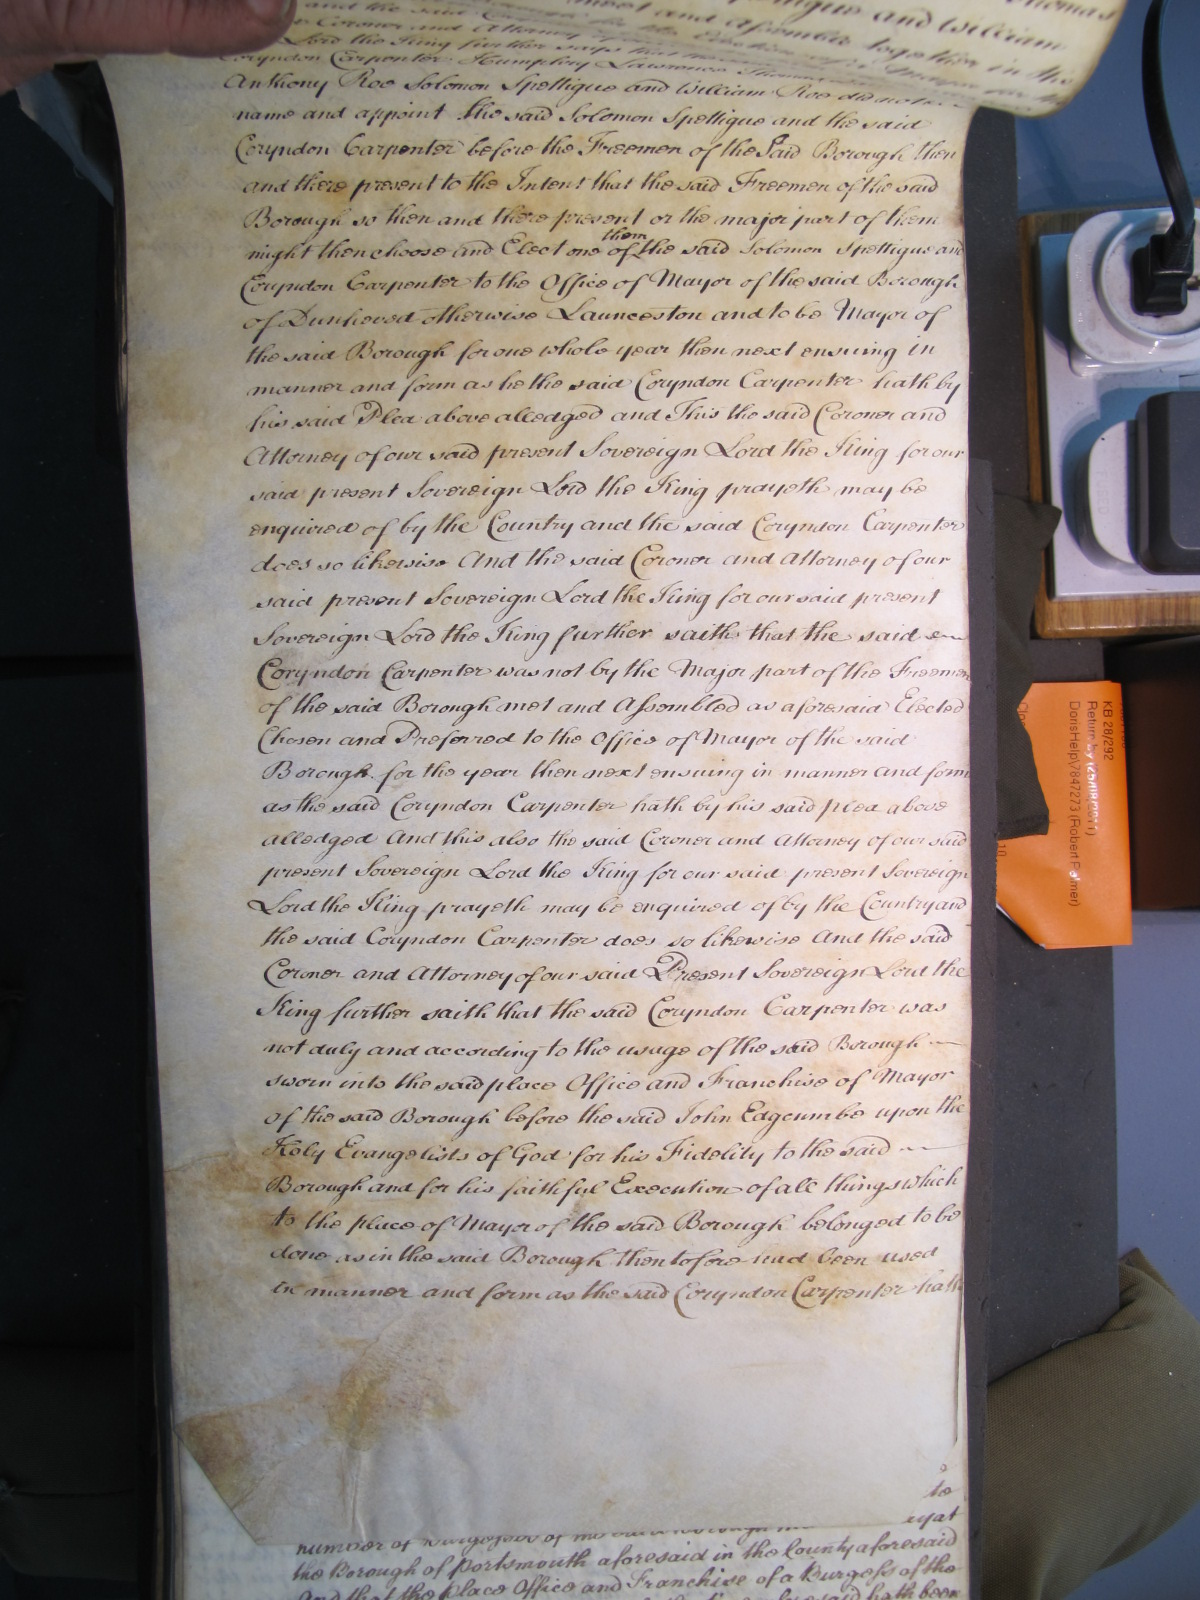 Thomas
and William
and the said
together in the
Coroner and Attorney
Lord the King further says that
Coryndon Carpenter Humphry Lawrence Thomas
Anthony Roe Solomon Spettigue and William Roe did not
name and appoint the said Solomon Spettigue and the said
Coryndon Carpenter before the Freemen of the Said Borough then
and there present to the Intent that the said Freemen of the said
Borough so then and there present or the major part of them
might then choose and Elect one of them the said Solomon Spettigue and
Coryndon Carpenter to the Office of Mayor of the said Borough
of Dunheved otherwise Launceston and to be Mayor of
the said Borough for one whole year then next ensuing in
manner and form as he the said Coryndon Carpenter hath by
his said Plea above alledged and This the said Coroner and
Attorney of our said present Sovereign Lord the King for our
said present Sovereign Lord the King prayeth may be
enquired of by the Country and the said Coryndon Carpenter
does so likewise And the said Coroner and Attorney of our
said present Sovereign Lord the King for our said present
Sovereign Lord the King further saith that the said
Coryndon Carpenter was not by the Major part of the Freemen
of the said Borough met and Assembled as aforesaid Elected
Chosen and Preferred to the Office of Mayor of the said
Borough for the year then next ensuing in manner and form
as the said Coryndon Carpenter hath by his said plea above
alledged And this also the said Coroner and Attorney of our said
present Sovereign Lord the King for our said present Sovereign
Lord the King prayeth may be enquired of by the Country and
the said Coryndon Carpenter does so likewise And the said
Coroner and Attorney of our said Present Sovereign Lord the
King further saith that the said Coryndon Carpenter was
not duly and according to the usage of the said Borough
sworn into the said place Office and Franchise of Mayor
of the said Borough before the said John Edgcumbe upon the
Holy Evangelists of God for his Fidelity to the said
Borough and for his faithful Execution of all things which
to the place of Mayor of the said Borough belonged to be
done as in the said Borough thentofore had been used
in manner and form as the said Coryndon Carpenter hath
to
number of Burgesses of
the Borough of Portsmouth aforesaid in the County aforesaid
And that the place Office and Franchise of a Burgess of the
said hath been
KB 28/292
Return by
DorisHelp\7847273 (Robert Palmer)